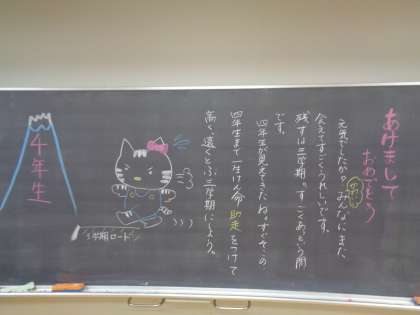 あけまして
おめでとう
元気でしたか。みんなにまた
会えてすごくうれしいです。
残すは三学期。すぐあという間
です。
四年生が見えてきたね。すぐそこの
四年生まで一生けん命助走をつけて
高く遠くとぶ三学期にしよう。
3学期ロード
4年生